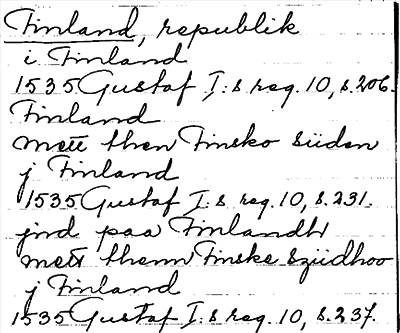 Finland, republik
i Finland
1535 Gustaf I:s reg. 10, s. 206.
Finland
mett then Finsko süden
j Finland
1535 Gustaf I:s reg. 10, s. 231.
jnd paa Finlandh
mett thenn Finske szüdhoo
j Finland
1535 Gustaf I:s reg. 10, s. 237.